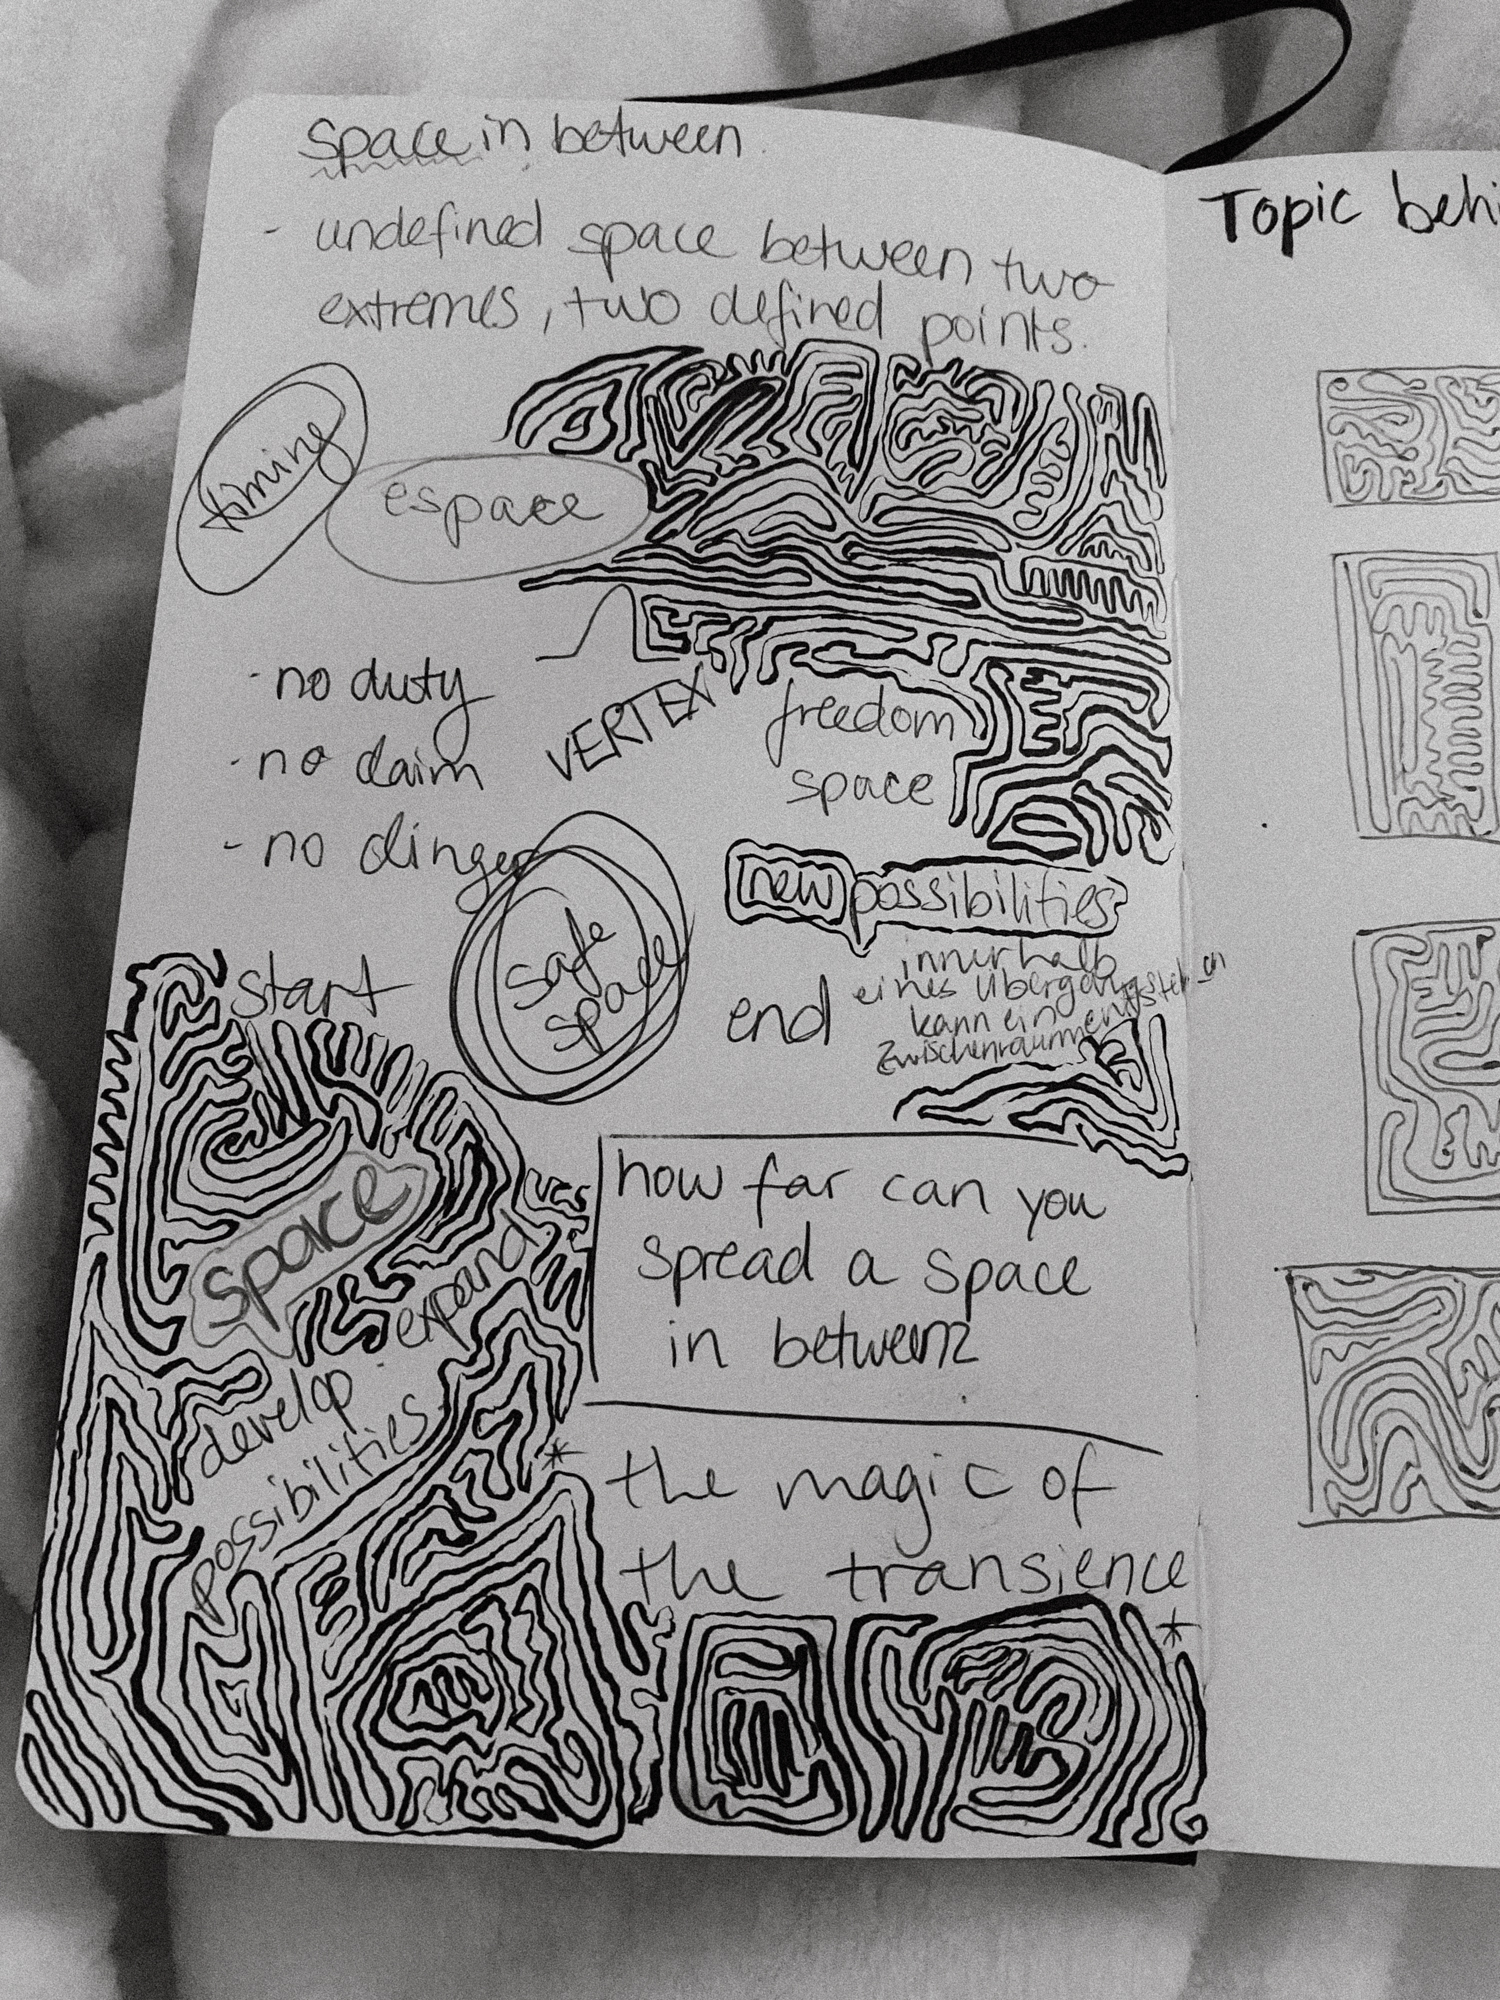 space in between
- undefined space between two
extremes, two defined points.
timing
espace
- no duty
- no claim
- no dinger
VERTEX
freedom
space
new possibilities
innerhalb
eines Übergangs
kann ein
Zwischenraum
start
safe
space
end
space
expand
develop
possibilities
how far can you
spread a space
in between?
* the magic of
the transience *
Topic behi